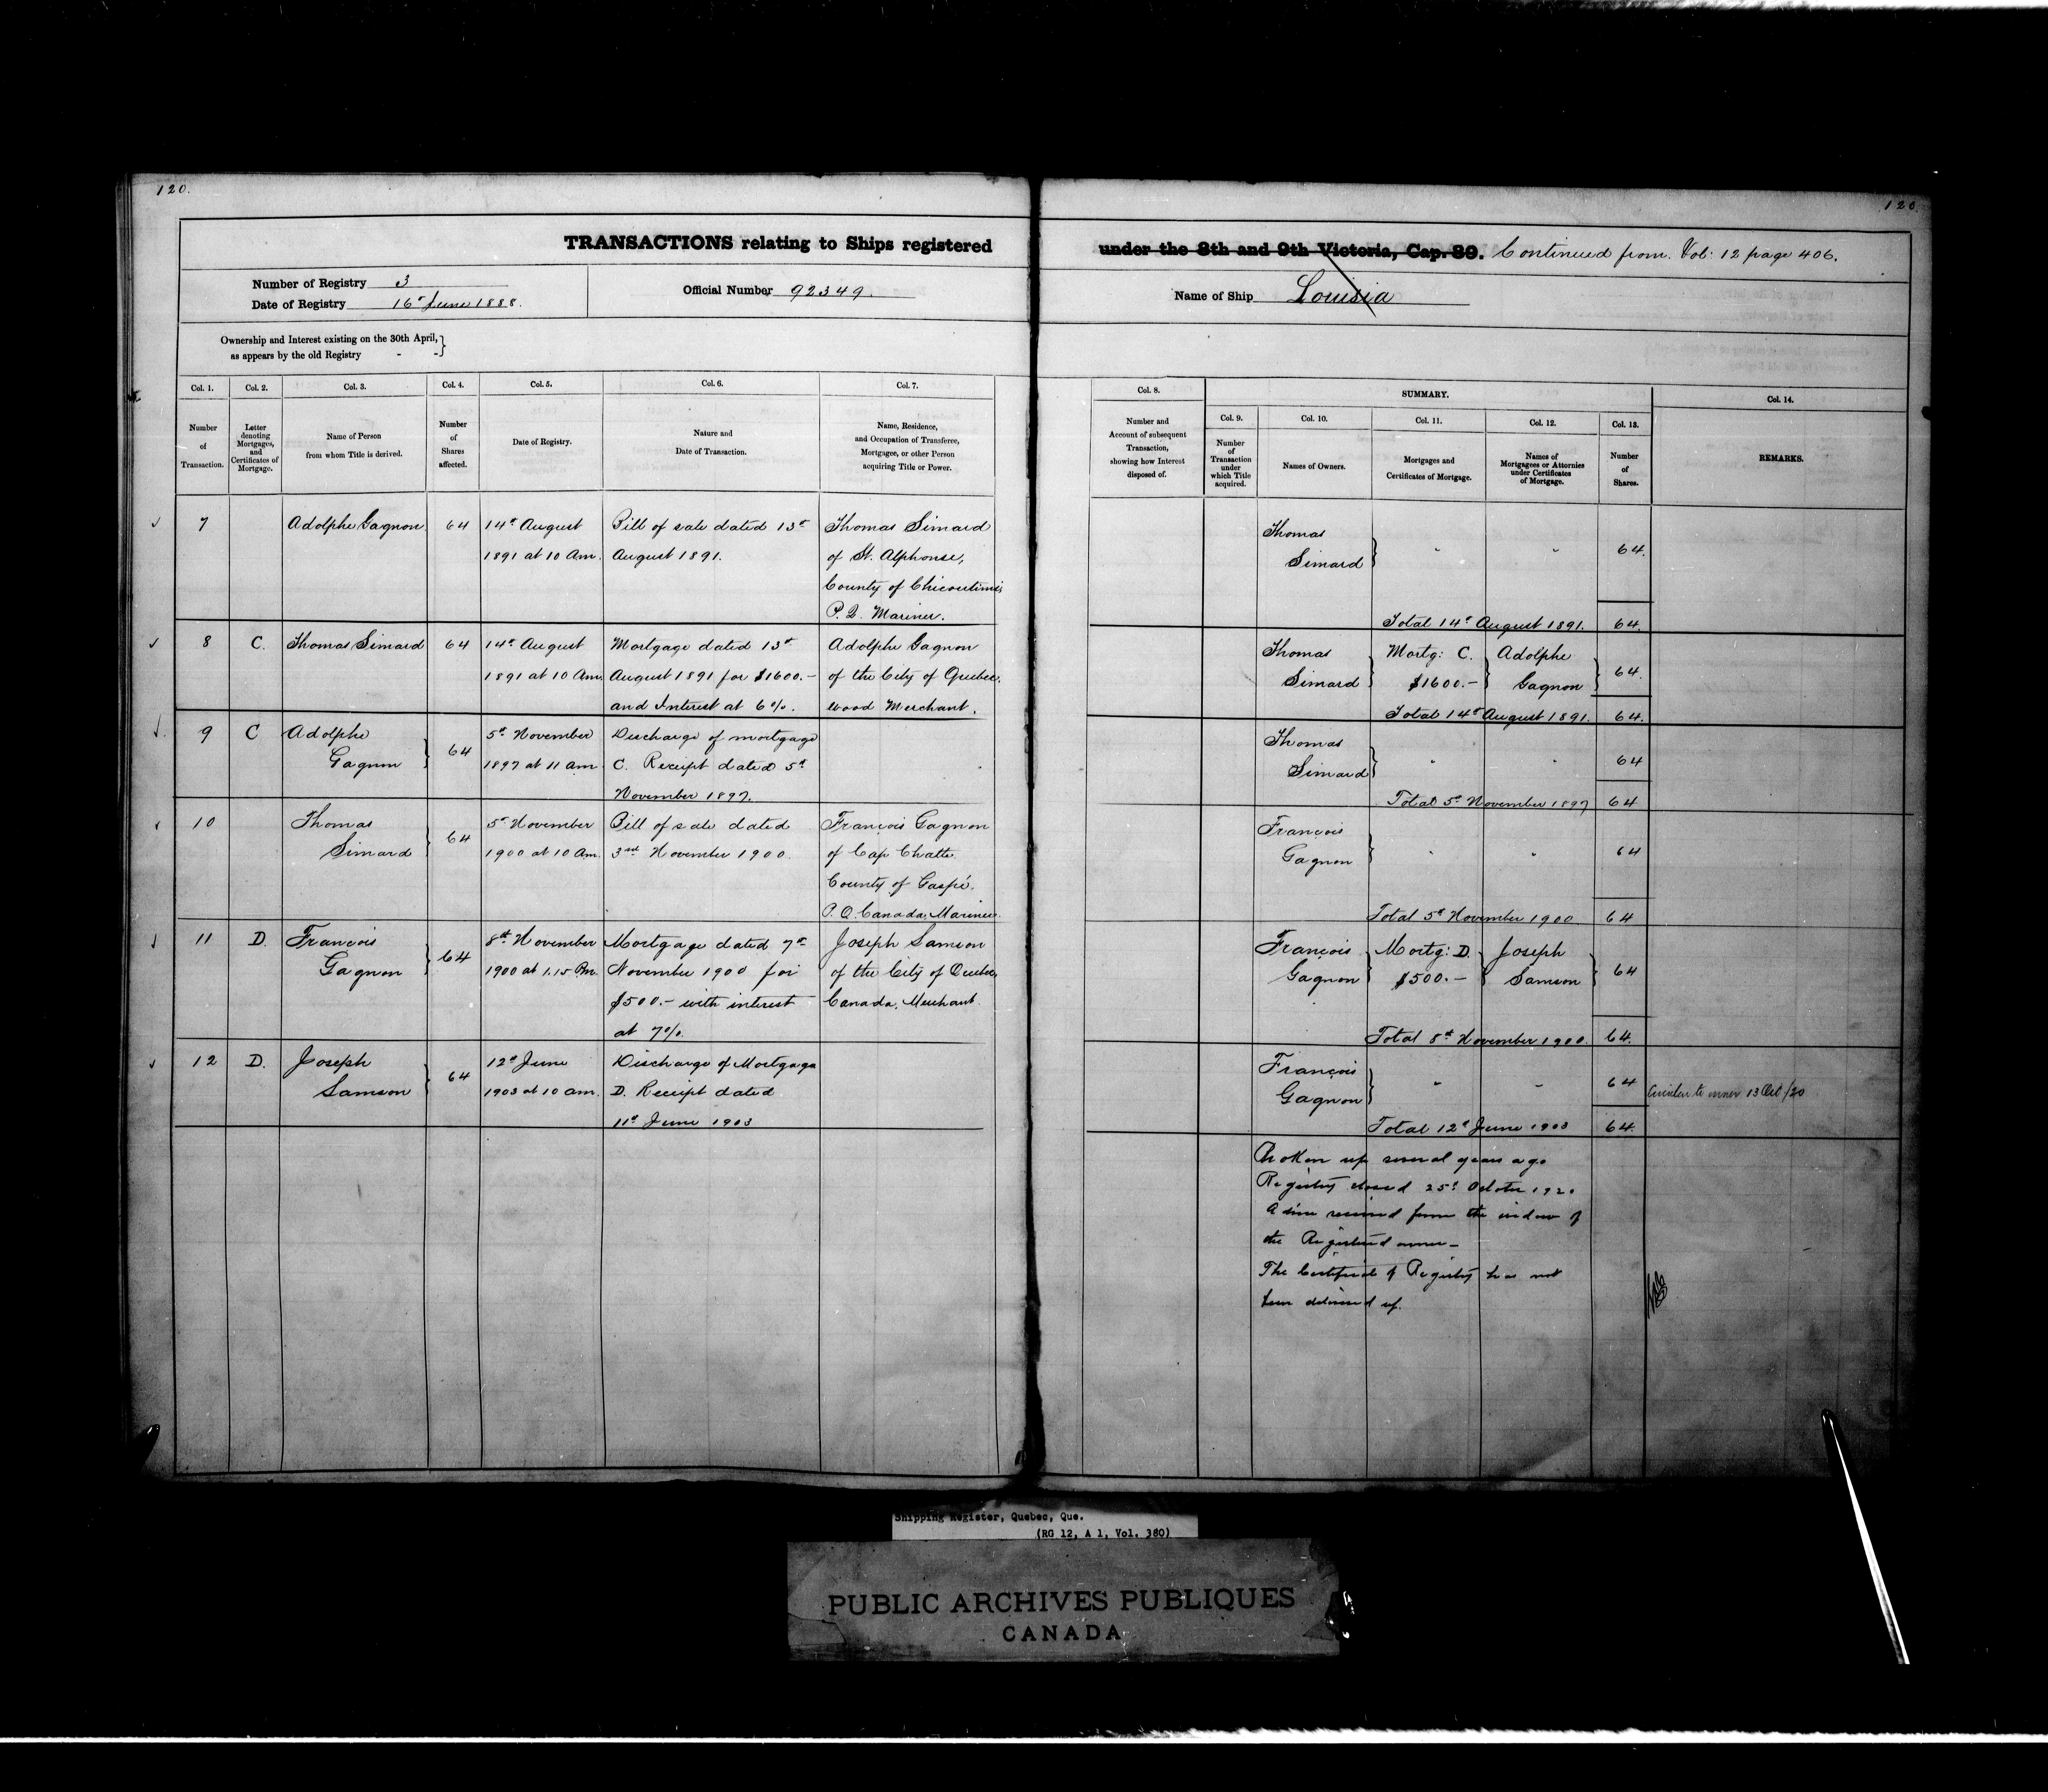 120.
120.
TRANSACTIONS relating to Ships registered under the 8th and 9th Victoria, Cap. 89. Continued from Vol: 12 page 406.
Number of Registry 3
Date of Registry 16th June 1888.
Official Number 92349.
Name of Ship Louisia
Ownership and Interest existing on the 30th April,
as appears by the old Registry - -
Col. 1.
Number
of
Transaction.
Col. 2.
Letter
denoting
Mortgages,
and
Certificates of
Mortgage.
Col. 3.
Name of Person
from whom Title is derived.
Col. 4.
Number
of
Shares
affected.
Col. 5.
Date of Registry.
Col. 6.
Nature and
Date of Transaction.
Col. 7.
Name, Residence,
and Occupation of Transferee,
Mortgagee, or other Person
acquiring Title or Power.
Col. 8.
Number and
Account of subsequent
Transaction,
showing how Interest
disposed of.
SUMMARY.
Col. 9.
Number
of
Transaction
under
which Title
acquired.
Col. 10.
Names of Owners.
Col. 11.
Mortgages and
Certificates of Mortgage.
Col. 12.
Names of
Mortgagees or Attornies
under Certificates
of Mortgage.
Col. 13.
Number
of
Shares.
Col. 14.
REMARKS.
7
Adolphe Gagnon
64
14th August
1891 at 10 Am.
Bill of sale dated 13th
August 1891.
Thomas Simard
of St. Alphonse,
County of Chicoutimi,
P.Q. Mariner.
Thomas
Simard
" "
64.
Total 14th August 1891. 64.
8
C.
Thomas Simard
64
14th August
1891 at 10 Am.
Mortgage dated 13th
August 1891 for $1600.-
and Interest at 6%.
Adolphe Gagnon
of the City of Quebec.
wood Merchant.
Thomas
Simard
Mortg: C.
$1600.-
Adolphe
Gagnon
64.
Total 14th August 1891. 64.
9
C
Adolphe
Gagnon
64
5th November
1897 at 11 am
Discharge of mortgage
C. Receipt dated 5th
November 1897.
Thomas
Simard
" "
64
Total 5th November 1897 64
10
Thomas
Simard
64
5th November
1900 at 10 Am.
Bill of sale dated
3rd November 1900.
François Gagnon
of Cap Chatte
County of Gaspé.
P.Q. Canada, Mariner.
François
Gagnon
" "
64
Total 5th November 1900 64
11
D.
François
Gagnon
64
8th November
1900 at 1.15 Pm.
Mortgage dated 7th
November 1900 for
$500.- with interest
at 7%.
Joseph Samson
of the City of Quebec,
Canada, Merchant.
François
Gagnon
Mortg: D.
$500.-
Joseph
Samson
64
Total 8th November 1900. 64.
12
D.
Joseph
Samson
64
12th June
1903 at 10 am.
Discharge of Mortgage
D. Receipt dated
11th June 1903
François
Gagnon
" "
64
Circular to owner 13 Oct/20
Total 12th June 1903 64.
Broken up several years ago
Registry closed 25th October 1920
Advice received from the widow of
the Registered owner -
The Certificate of Registry has not
been delivered up.
Shipping Register, Quebec, Que.
(RG 12, A 1, Vol. 380)
PUBLIC ARCHIVES PUBLIQUES
CANADA